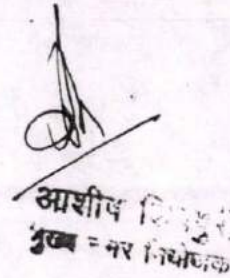 आशीष
मुख्य नगर नियोजक